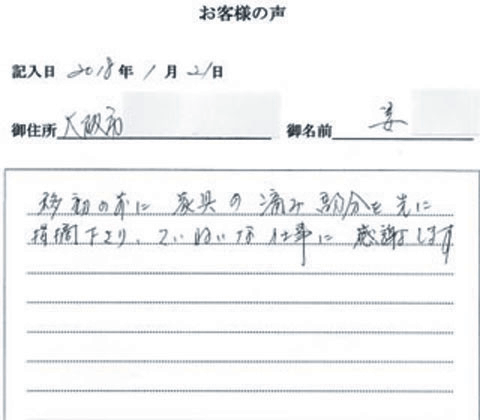 お客様の声
記入日 2018年 1月 21日
御住所 大阪市 御名前 姜
移動の前に 家具の痛み部分を先に
指摘下さり、ていねいな仕事に感謝します